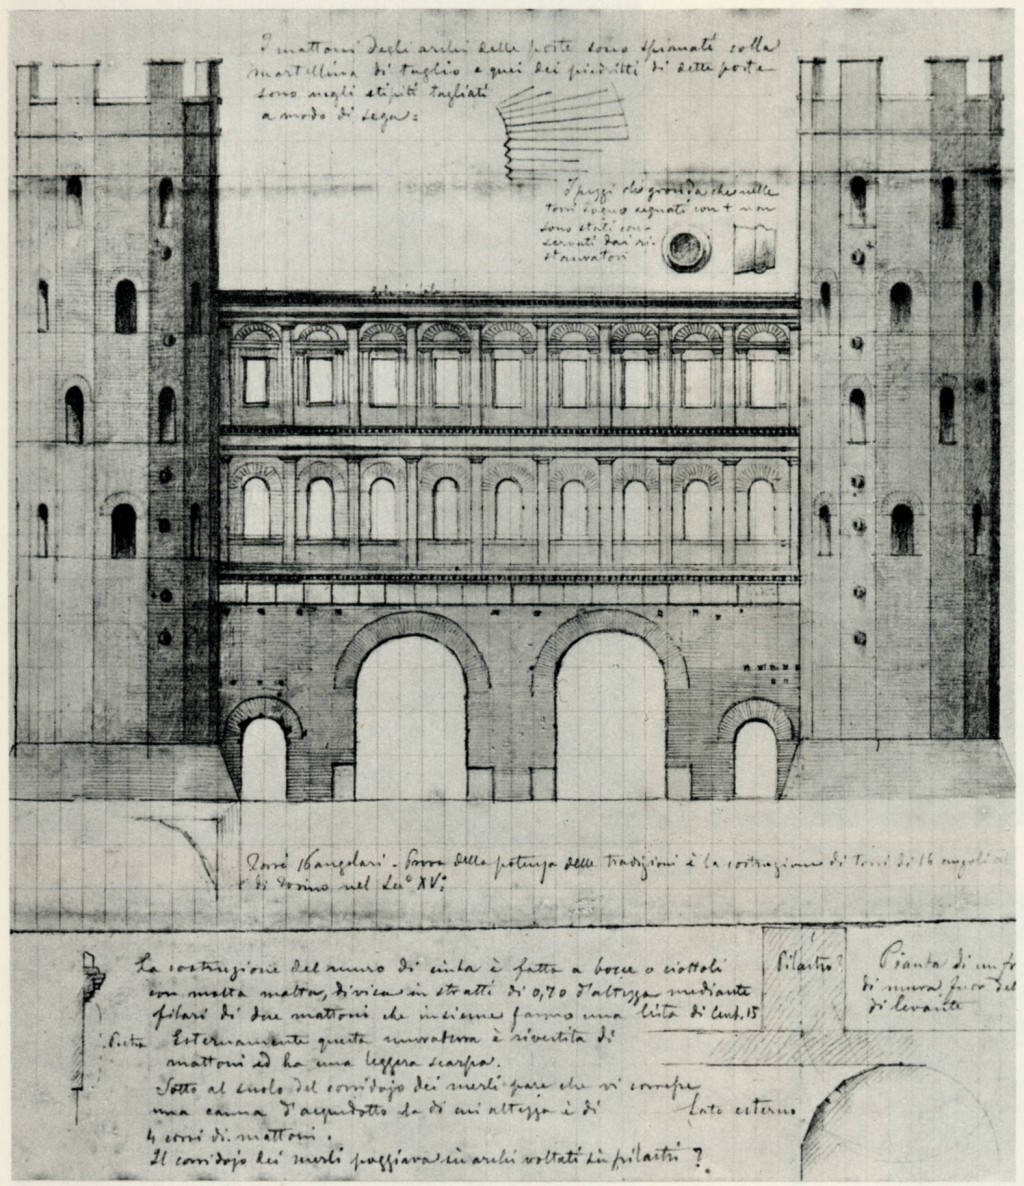 I mattoni degli archi delle porte sono spianati colla
martellina di taglio e quei dei piedritti di dette porte
sono negli stipiti tagliati
a modo di sega:
I pezzi di gronda che nelle
torri sono segnati con + non
sono stati con-
servati dai ri-
stauratori
Torri 16angolari - Prova della potenza delle tradizioni è la costruzione di Torri di 16 angoli
di Torino nel Sec.º XV:
La costruzione del muro di cinta è fatta a bocce o ciottoli
con molta malta, divisa in stratti di 0,70 d'altezza mediante
filari di due mattoni che insieme fanno una lista di Cent. 15
Esternamente questa muratura è rivestita di
mattoni ed ha una leggera scarpa.
Sotto al suolo del corridojo dei merli pare che vi corresse
una canna d'acquedotto la di cui altezza è di
4 corsi di mattoni.
Il corridojo dei merli poggiava su archi voltati su pilastri?
Pietra
Pilastro?
Pianta di un
di mura fuor del
di levante
Lato esterno